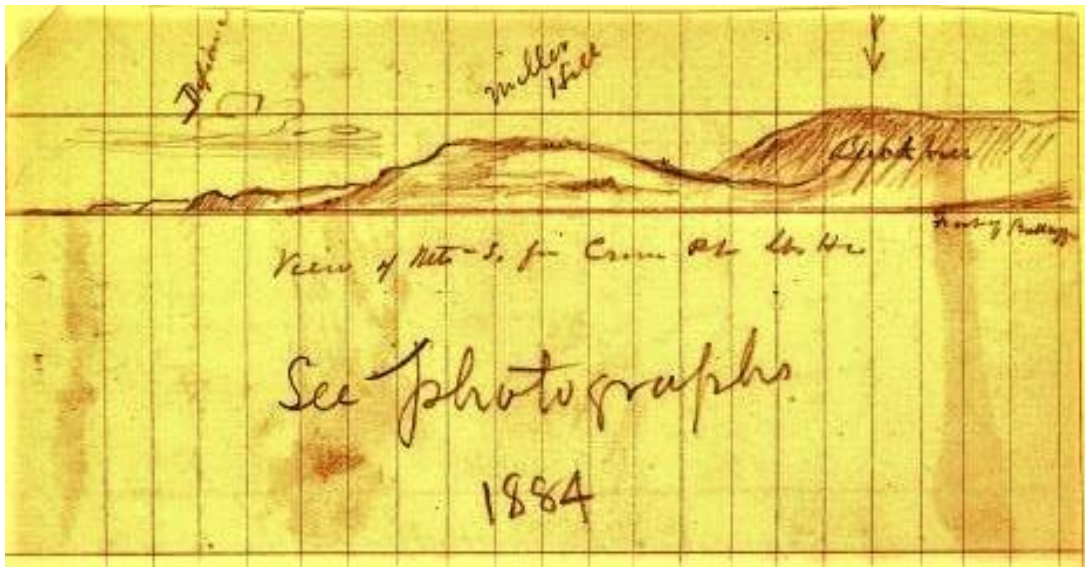 Defiance
Miller
Hill
View of Mts - S. fm Crown Pt. Lt. Ho.
See photographs
1884